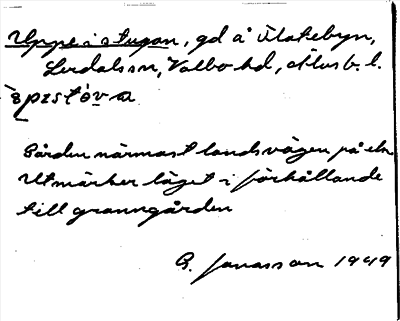 Uppe i stugan, gd å Slatebyn,
Lerdals sn, Valbo hd, Älvsb. l.
Gården närmast landsvägen på eln
Utmärker läget i förhållande
till granngården
G. Jonasson 1949